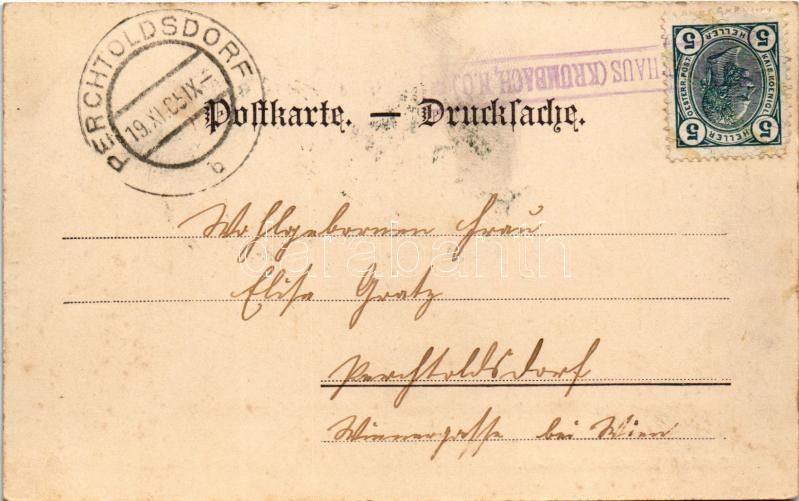 PERCHTOLDSDORF
19.XI.05
b
HAUS (KRUMBACH, N.Ö.)
5 HELLER 5
KAIS. KOENIGL.
OESTERR. POST
5 HELLER 5
Postkarte. — Drucksache.
Wohlgebornen Frau
Elise Gratz
Perchtoldsdorf
Wienergasse bei Wien
darabanth